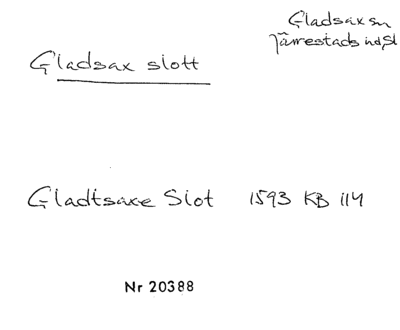 Gladsax sn
Järrestads hd, Sk
Gladsax slott
Gladtsaxe Slot 1593 KB 114
Nr 20388